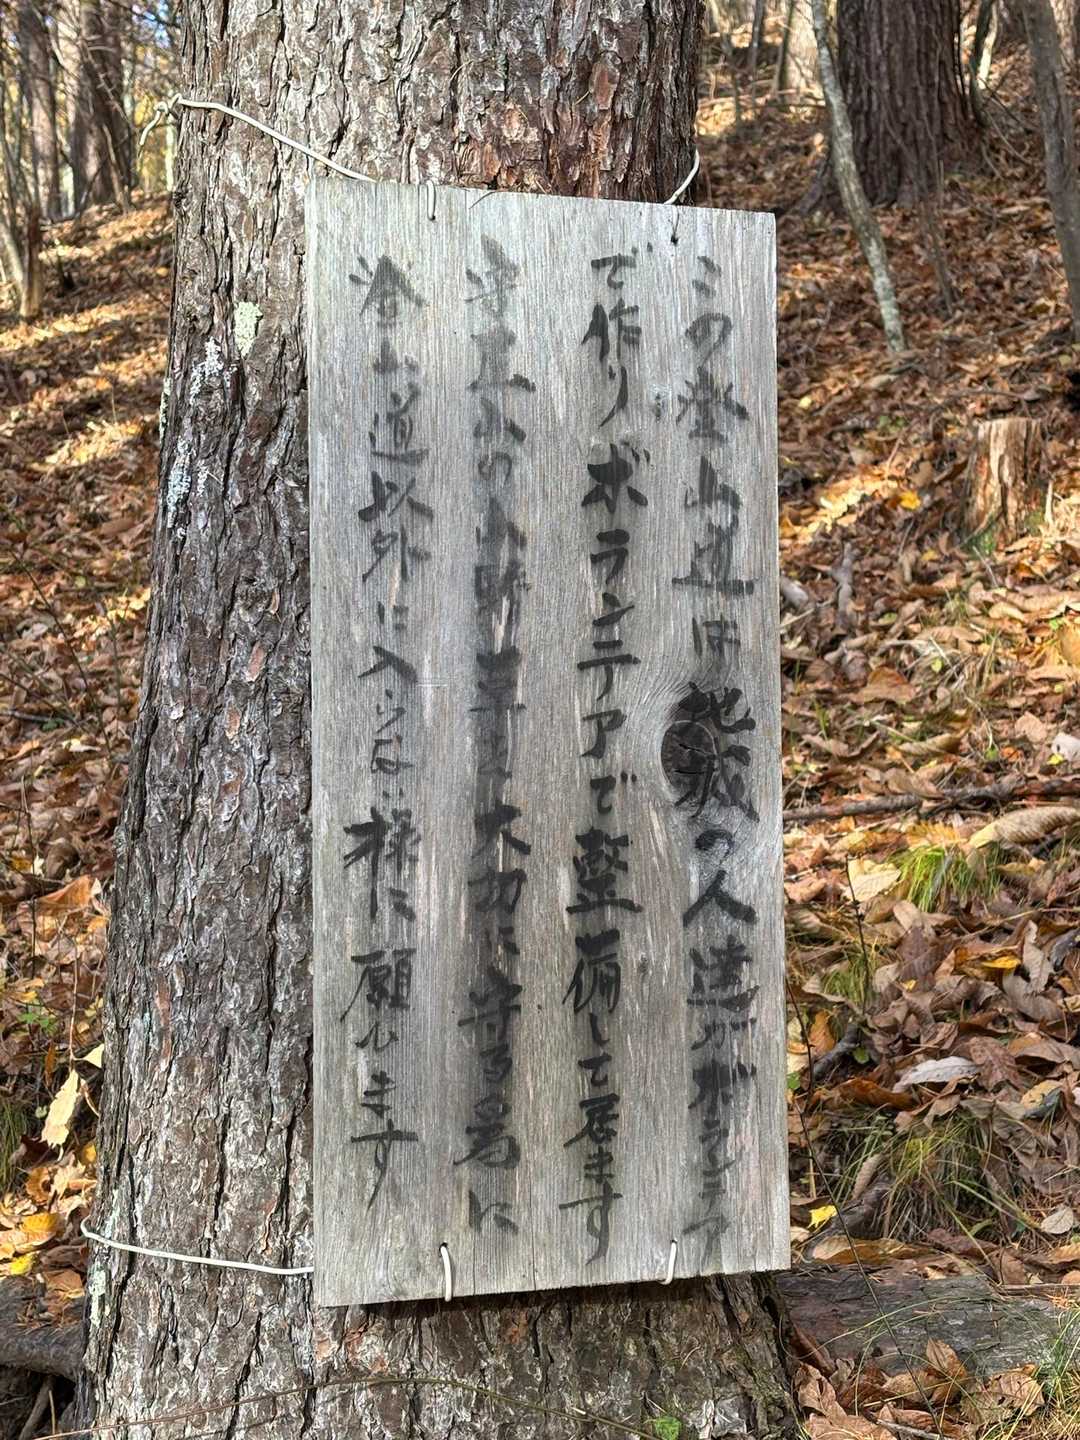 この登山道は の人達がボランテア
で作りボランテアで整備して居ます
山の山野草を大切に守る為に
登山道以外に入らない様に願ひます